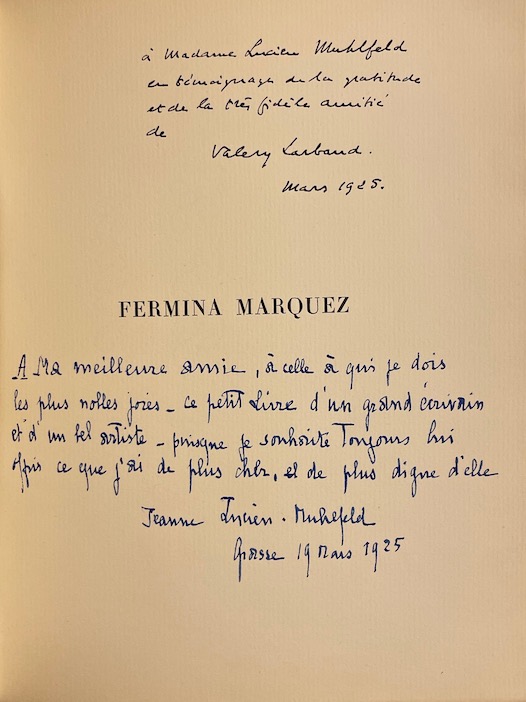 à Madame Lucien Muhlfeld
en témoignage de la gratitude
et de la très fidèle amitié
de
Valery Larbaud.
Mars 1925.
FERMINA MARQUEZ
A Ma meilleure amie, à celle à qui je dois
les plus nobles joies - ce petit Livre d'un grand écrivain
et d'un bel artiste - puisque je souhaite Toujours lui
offrir ce que j'ai de plus cher, et de plus digne d'elle
Jeanne Lucien-Muhlfeld
Grasse 19 Mars 1925